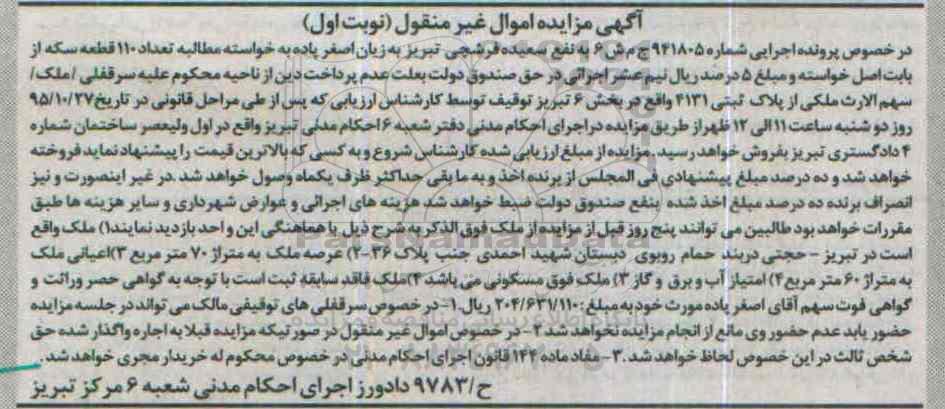 آگهی مزایده اموال غیر منقول (نوبت اول)
در خصوص پرونده اجرایی شماره ۹۴۱۸۰۵ ج م ش ۶ به نفع سعیده فرشچی تبریز به زیان اصغر پاده به خواسته مطالبه تعداد ۱۱۰ قطعه سکه از
بابت اصل خواسته و مبلغ ۵ درصد ریال نیم عشر اجرائی در حق صندوق دولت بعلت عدم پرداخت دین از ناحیه محکوم علیه سرقفلی / ملک /
سهم الارث ملکی از پلاک ثبتی ۴۱۳۱ واقع در بخش ۶ تبریز توقیف توسط کارشناس ارزیابی که پس از طی مراحل قانونی در تاریخ ۹۵/۱۰/۲۷
روز دو شنبه ساعت ۱۱ الی ۱۲ ظهر از طریق مزایده در اجرای احکام مدنی دفتر شعبه ۶ احکام مدنی تبریز واقع در اول ولیعصر ساختمان شماره
۴ دادگستری تبریز بفروش خواهد رسید. مزایده از مبلغ ارزیابی شده کارشناس شروع و به کسی که بالاترین قیمت را پیشنهاد نماید فروخته
خواهد شد و ده درصد مبلغ پیشنهادی فی المجلس از برنده اخذ و به ما بقی حداکثر ظرف یکماه وصول خواهد شد. در غیر اینصورت و نیز
انصراف برنده ده درصد مبلغ اخذ شده بنفع صندوق دولت ضبط خواهد شد هزینه های اجرائی و عوارض شهرداری و سایر هزینه ها طبق
مقررات خواهد بود طالبین می توانند پنج روز قبل از مزایده از ملک فوق الذکر به شرح ذیل با هماهنگی این واحد بازدید نمایند ۱) ملک واقع
است در تبریز - حجتی دربند حمام روبوی دبستان شهید احمدی جنب پلاک ۳۶ - ۲) عرصه ملک به متراژ ۷۰ متر مربع ۳) اعیانی ملک
به متراژ ۶۰ متر مربع ۴) امتیاز آب و برق و گاز ۳) ملک فوق مسکونی می باشد ۴) ملک فاقد سابقه ثبت است با توجه به گواهی حصر وراثت و
گواهی فوت سهم آقای اصغر پاده مورث خود به مبلغ: ۲۰۴/۶۳۱/۱۱۰ ریال ۱- در خصوص سرقفلی های توقیفی مالک می تواند در جلسه مزایده
حضور یابد عدم حضور وی مانع از انجام مزایده نخواهد شد ۲- در خصوص اموال غیر منقول در صورتیکه مزایده قبلا به اجاره واگذار شده حق
شخص ثالث در این خصوص لحاظ خواهد شد. ۳- مفاد ماده ۱۴۴ قانون اجرای احکام مدنی در خصوص محکوم له خریدار مجری خواهد شد.
ح/۹۷۸۳ دادورز اجرای احکام مدنی شعبه ۶ مرکز تبریز
ParsNamadData